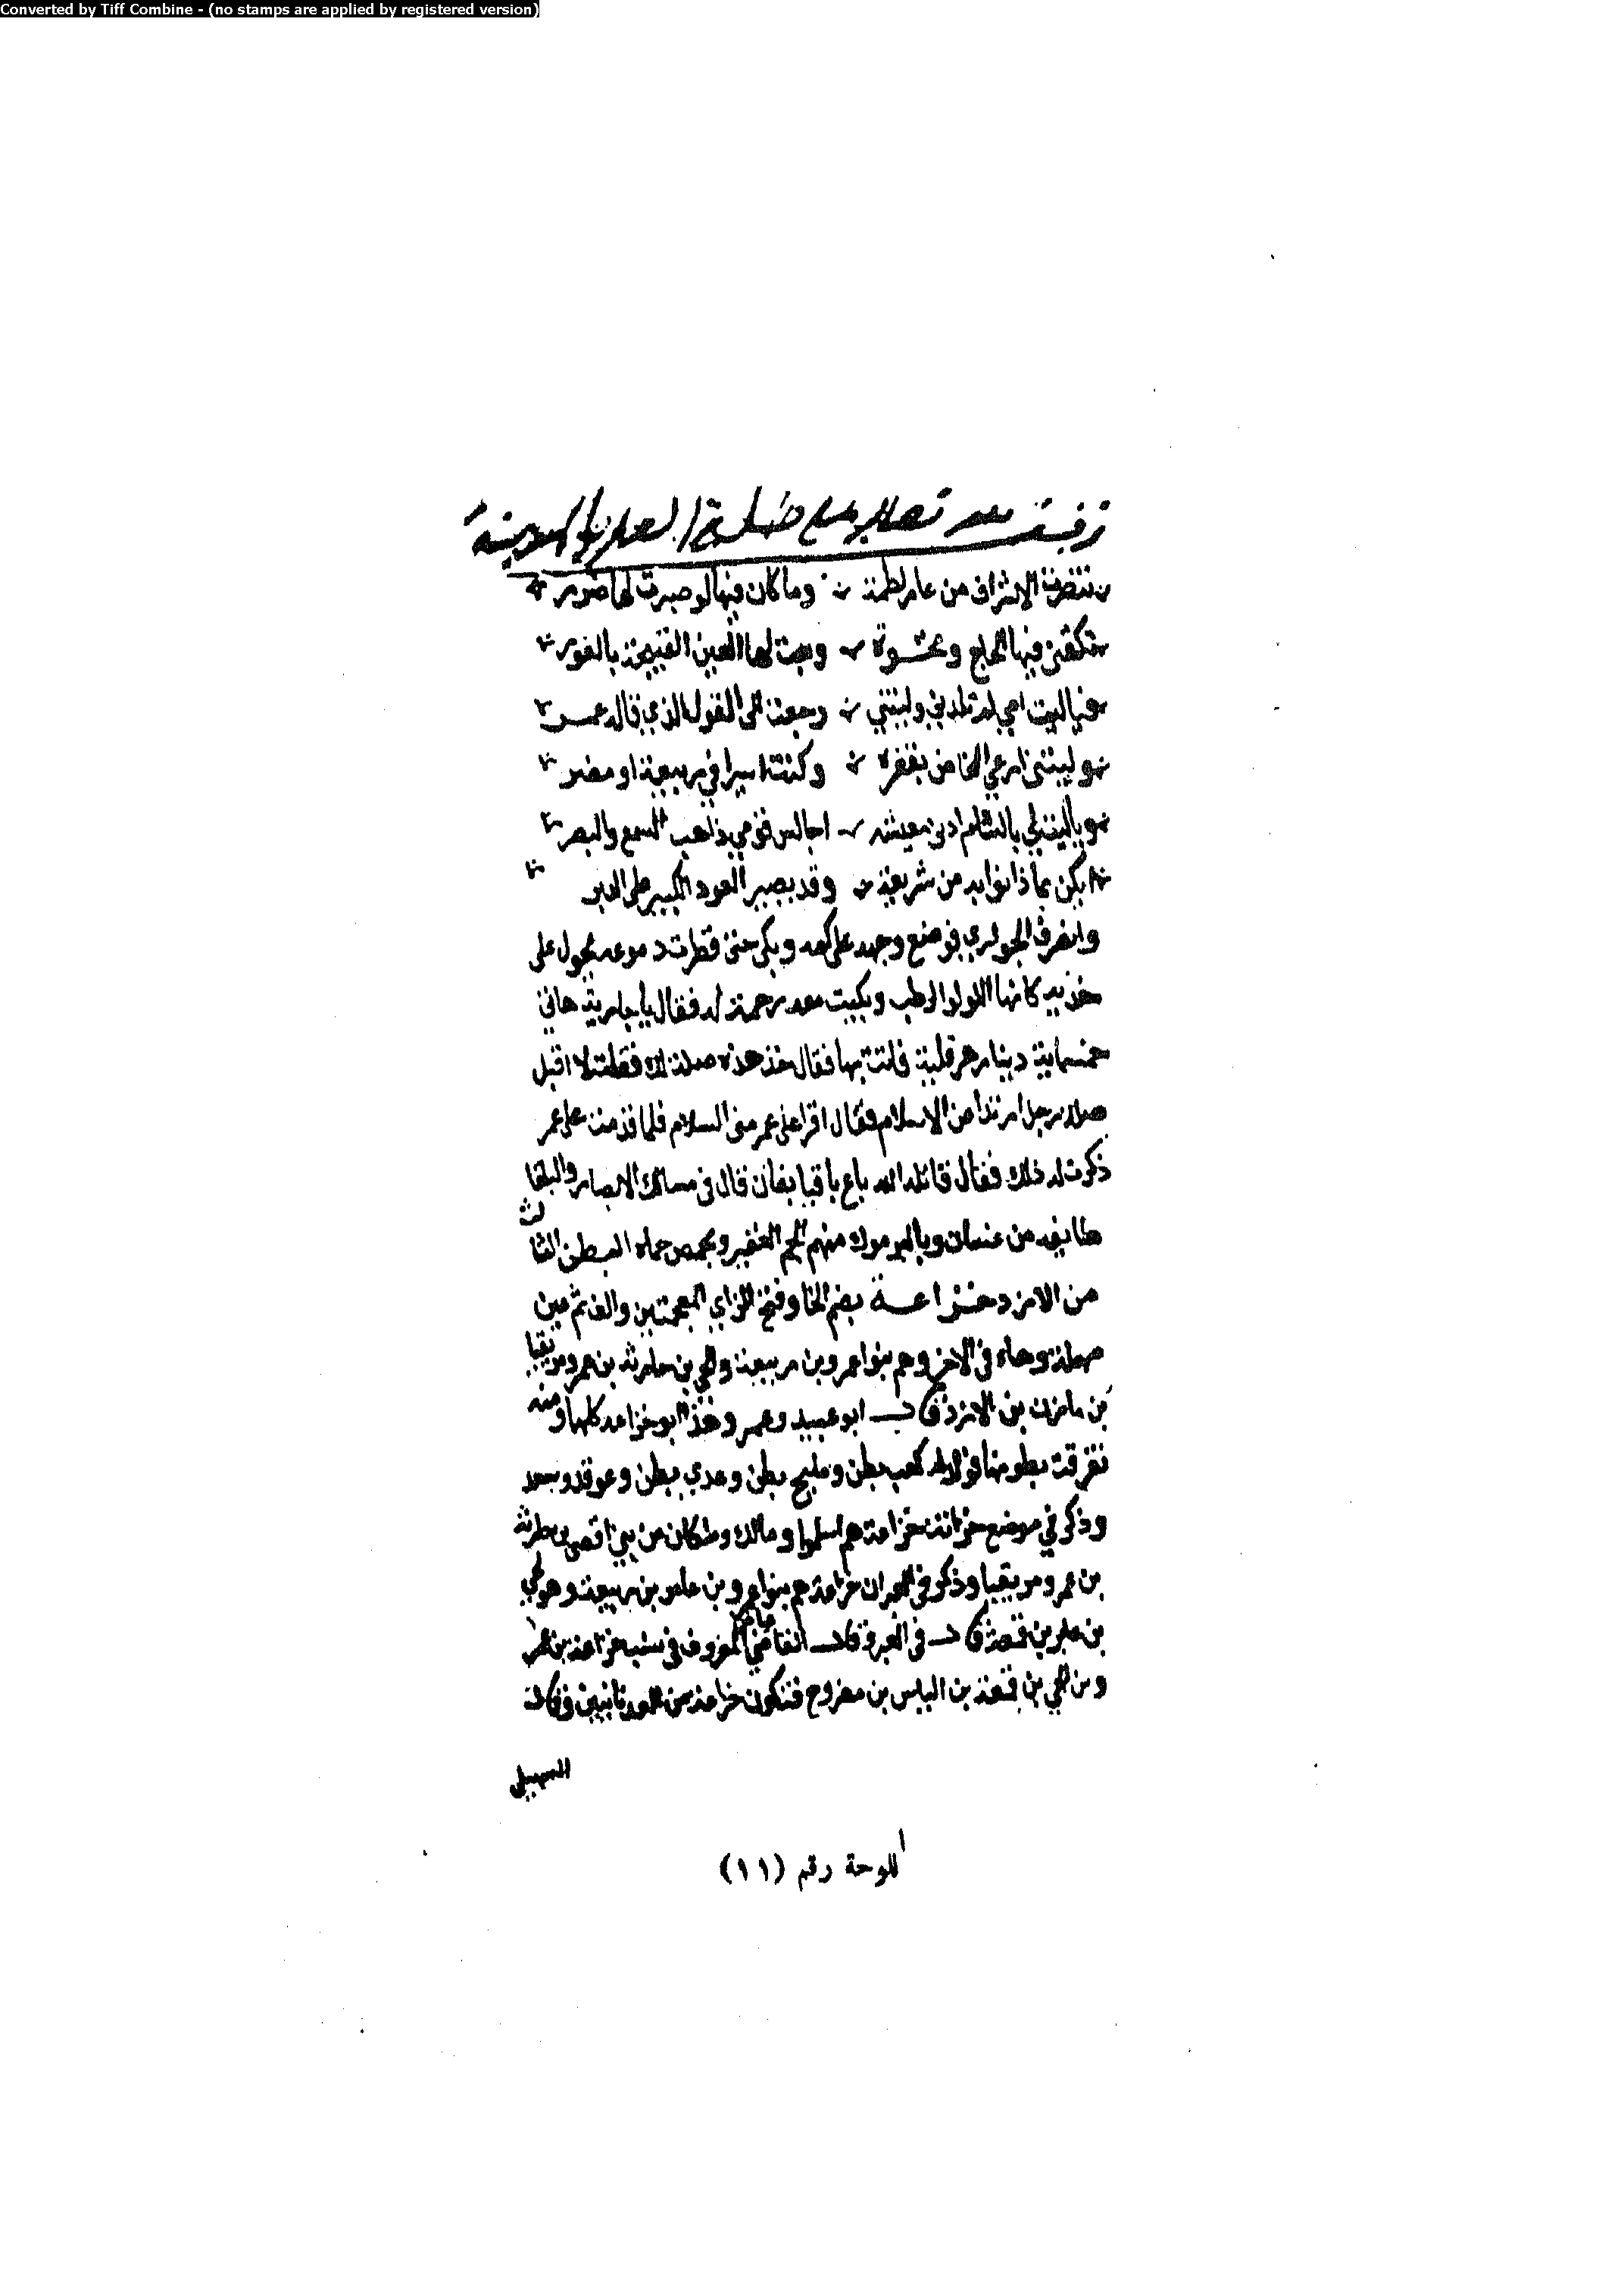 Converted by Tiff Combine - (no stamps are applied by registered version)
تنصرت الاشراف من عار لطمة وما كان فيها لو صبرت لها ضرر
تكنفني فيها لجاج ونخوة وبعت لها العين الصحيحة بالعور
فياليت امي لم تلدني وليتني رجعت الى القول الذي قاله عمر
وليتني ارعى المخاض بقفره وكنت اسيرا في ربيعة او مضر
وياليت لي بالشام ادنى معيشه اجالس قومي ذاهب السمع والبصر
من شريعة وقد يصبر العود الكبير على الدبر
وانصرف الجواري فوضع وجهه على كمه وبكى حتى قطرت دموعه تجول على
خديه كانها اللولو الرطب وبكيت معه رحمة له فقال يا جارية هاتي
خمسماية دينار هرقلية فاتت بها فقال خذ هذه صلة لك فقلت لا اقبل
صلة رجل ارتد عن الاسلام فقال اقرا على عمر مني السلام فلما قدمت على عمر
ذكرت له ذلك فقال قاتله الله باع باقيا بفان قال في مسالك الابصار والبلقا
طايفه من غسان وباليرموك منهم الجم الغفير وبحمص حماه البطن الثالث
من الازد خزاعة بضم الخا وفتح الزاي المعجمتين والف ثم عين
مهملة وهاء في الاخر وهم بنوا عمرو بن ربيعة ولحي بن حارثه بن عمرو مزيقيا
بن مازن بن الازد قال ابو عبيد وعمرو هذا ابو خزاعه كلها ومنه
تفرقت بطونها فولد كعب بطن ومليح بطن وعدي بطن وعوف وسعد
وذكر في موضع خزاعة هم اسلم ومالك وملكان من بني اقصى بن حارثة
بن عمرو مزيقيا وذكر في العبر ان خزاعة هم بنوا عمرو بن عامر بن ربيعة وهو لحي
بن عامر بن قمعة قال في العبر وقال القاضي عياض المعروف في نسب خزاعة بن عمر
وبن لحي بن قمعة بن الياس بن مضر فتكون خزاعة من العدنانيين وقال
السهيلي
اللوحة رقم (١١)